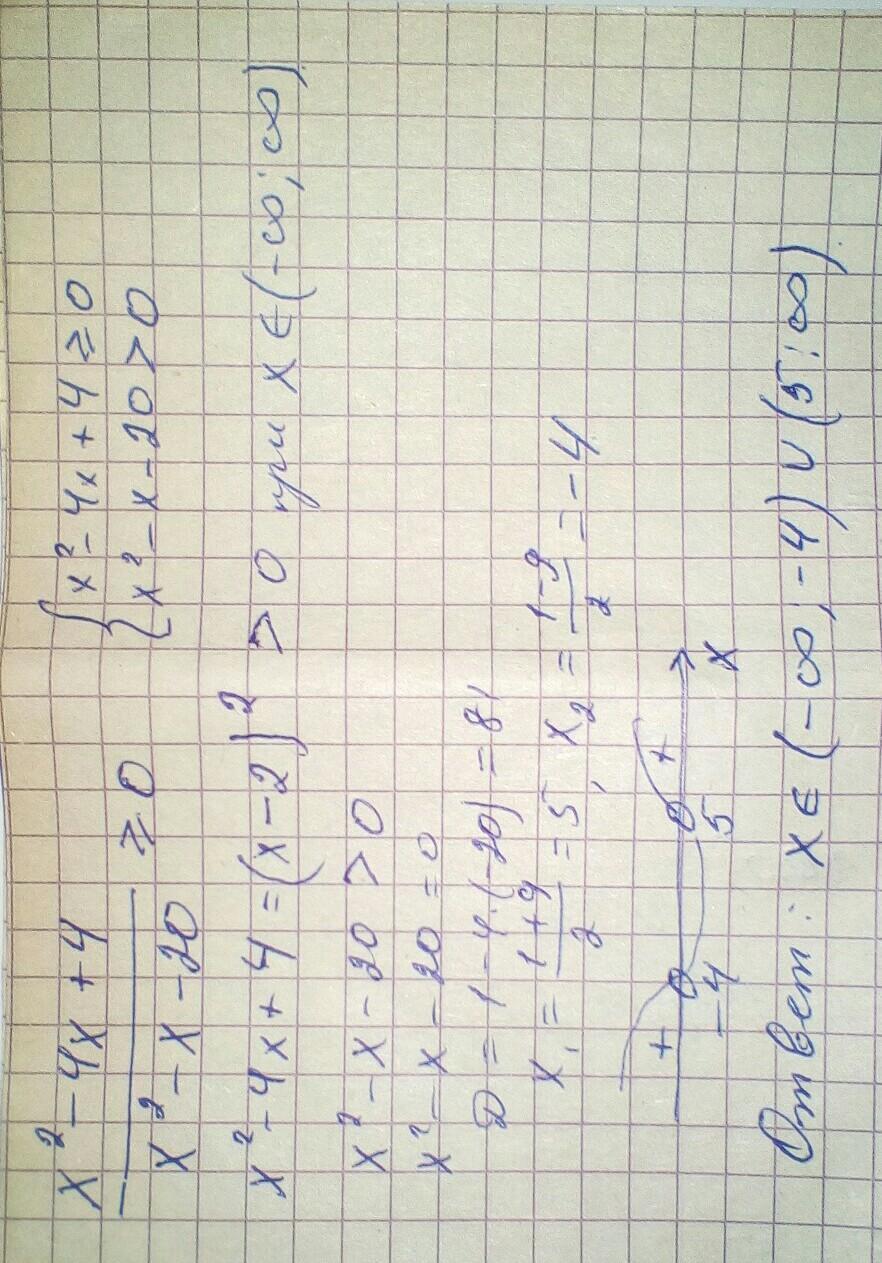 (x² - 4x + 4)/(x² - x - 20) ≥ 0 { x² - 4x + 4 ≥ 0
x² - x - 20 > 0
x² - 4x + 4 = (x - 2)² > 0 при x ∈ (-∞; ∞)
x² - x - 20 > 0
x² - x - 20 = 0
D = 1 - 4·(-20) = 81
x₁ = (1+9)/2 = 5, x₂ = (1-9)/2 = -4
+ +
-4 5 x
Ответ: x ∈ (-∞; -4) ∪ (5; ∞).